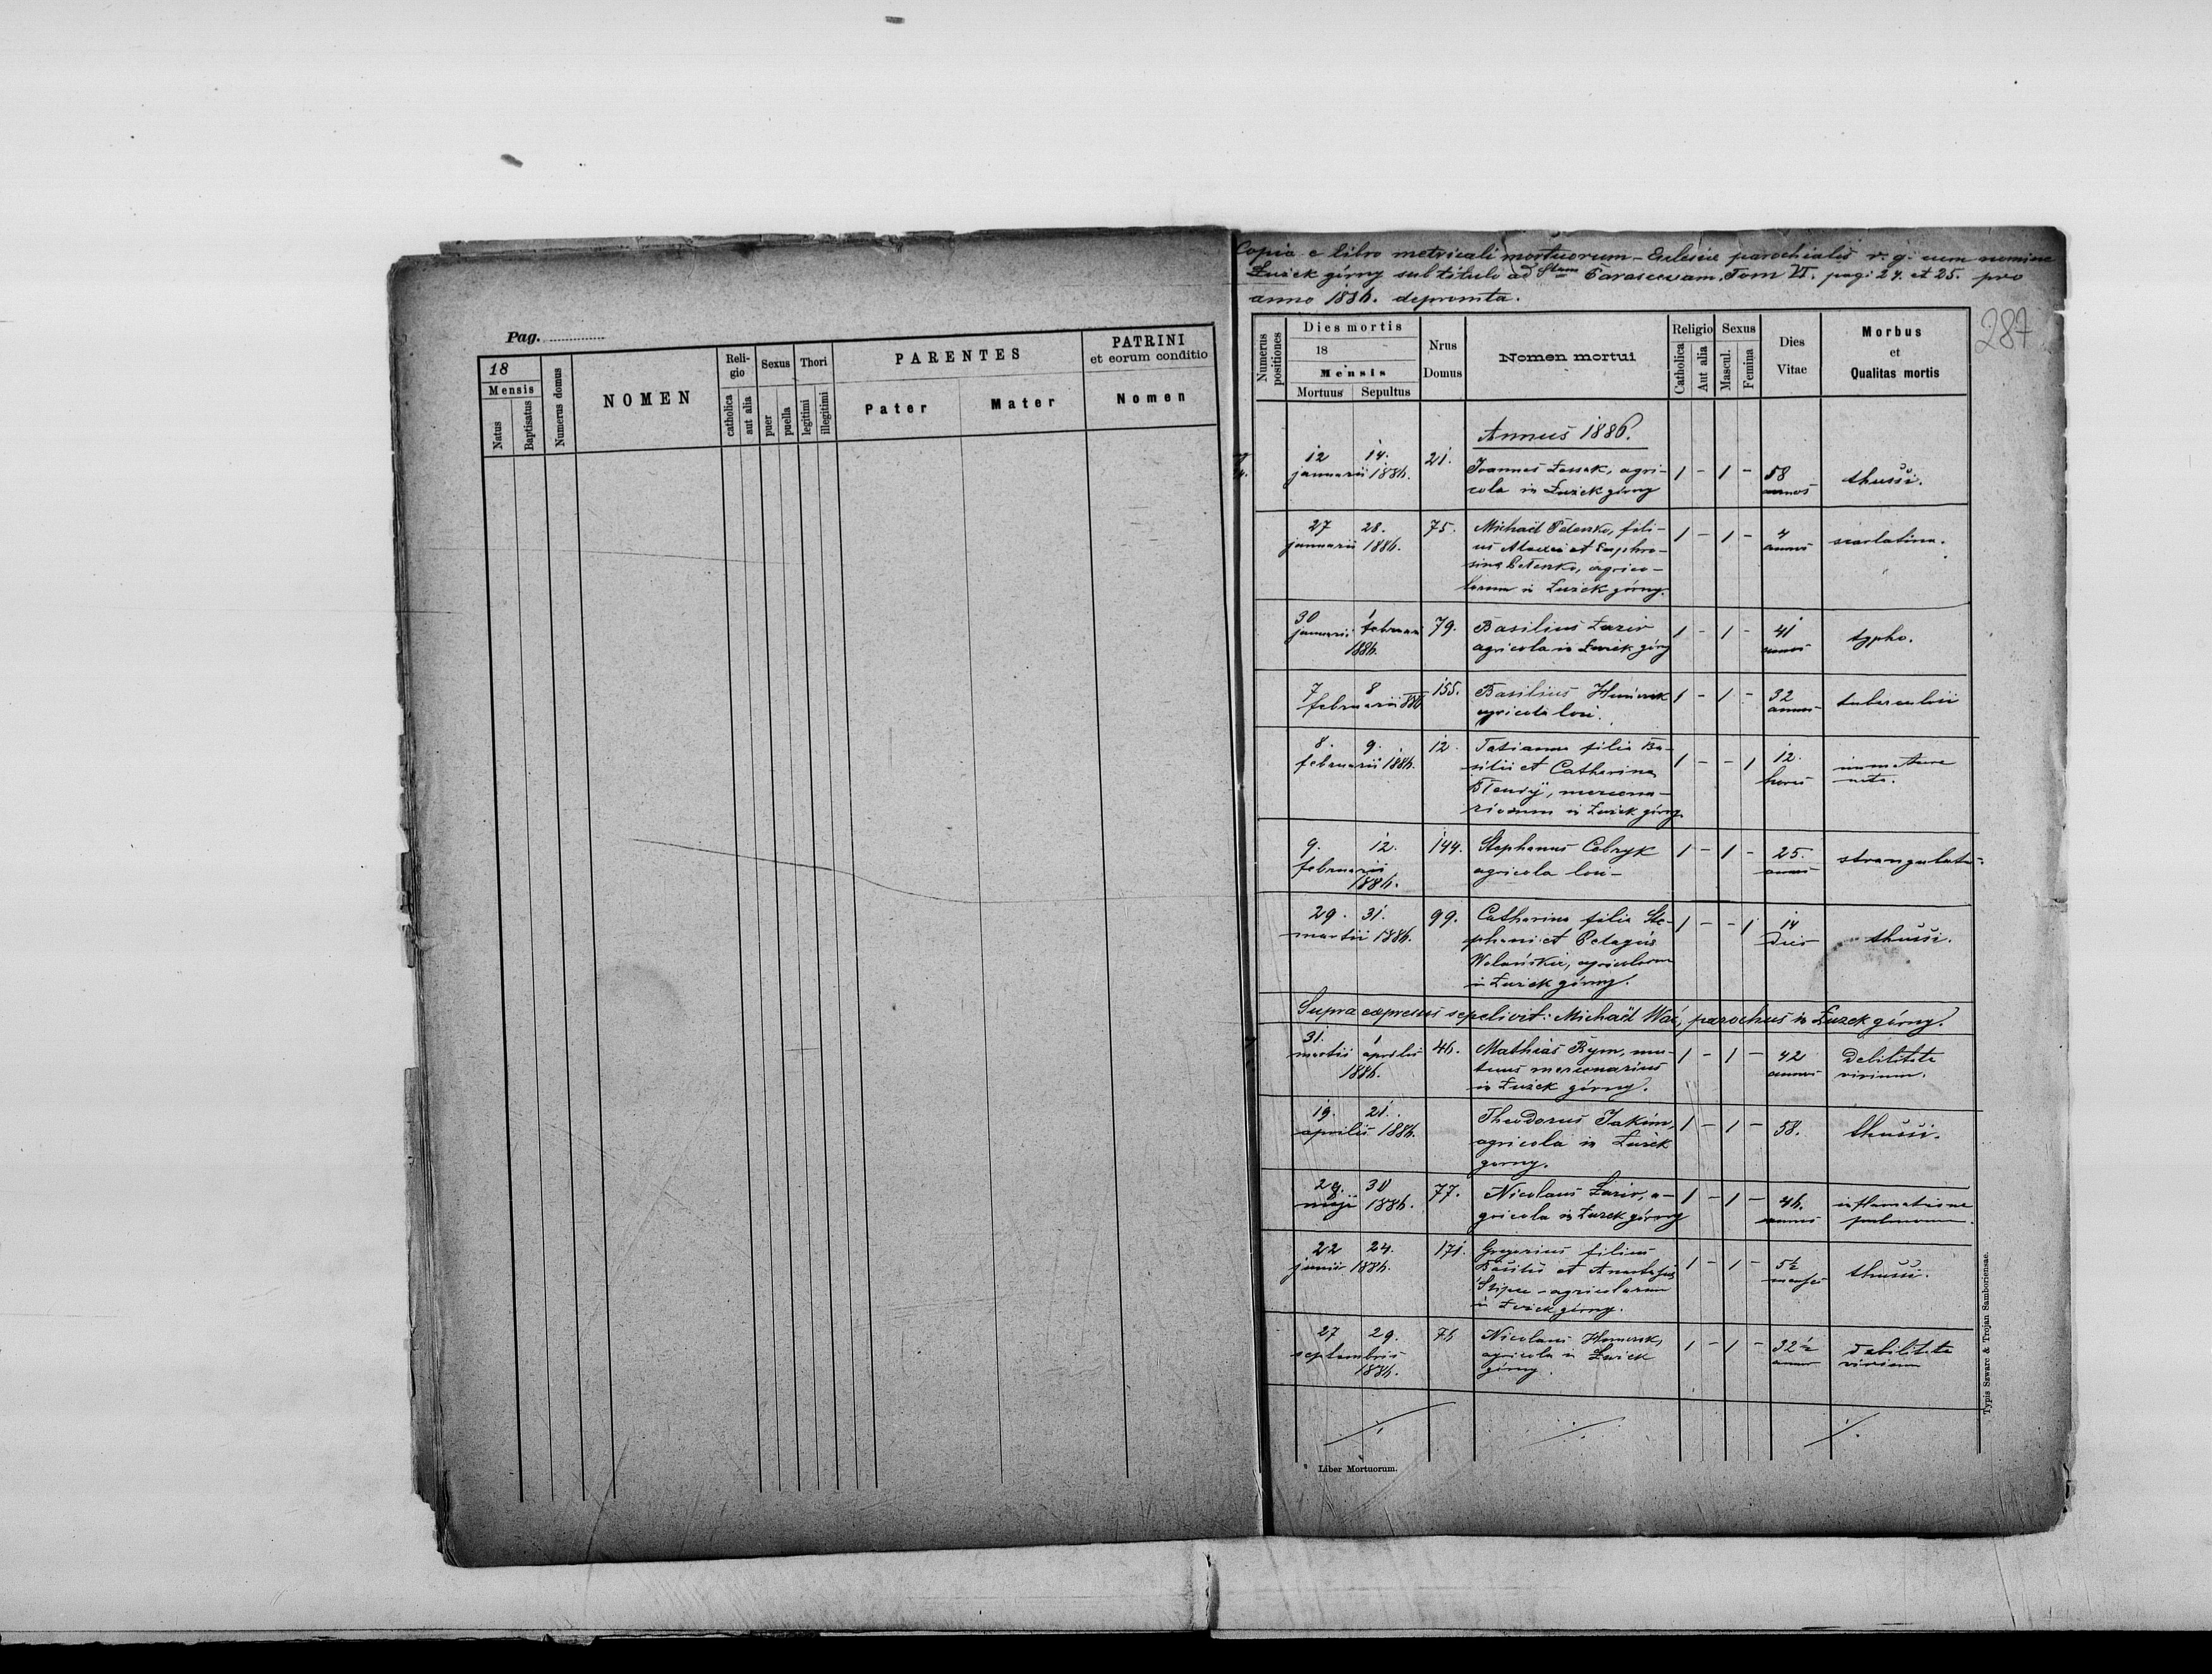 Pag.
18
Mensis
Natus
Baptisatus
Numerus domus
NOMEN
Reli-
gio
catholica
aut alia
Sexus
puer
puella
Thori
legitimi
illegitimi
PARENTES
Pater
Mater
PATRINI
et eorum conditio
Nomen
Copia e libro metricali mortuorum - Eclesiae parochialis r. g. cum nomine
Łużek górny sub titulo ad Stam Parascevam. Tom VI. pag: 24. et 25. pro
anno 1886. depromta.
287
Numerus
positiones
Dies mortis
18
Mensis
Mortuus Sepultus
Nrus
Domus
Nomen mortui
Religio
Catholica
Aut alia
Sexus
Mascul.
Femina
Dies
Vitae
Morbus
et
Qualitas mortis
Annus 1886.
12 14. 21. Joannes Lessak, agri- 1 - 1 - 58 thussi.
januarii 1886. cola in Łużek górny annos
27 28. 75. Michaël Petenko, fili- 1 - 1 - 4 scarlatina.
januarii 1886. us Alexii et Euphro- annos
sina Petenko, agrico-
larum in Łużek górny.
30 1 79. Basilius Łaziv 1 - 1 - 41 typho.
januarii februarii agricola in Łużek górny annos
1886.
7 8 155. Basilius 1 - 1 - 32 tuberculosi
februarii 886 agricola loci. annos
8. 9. 12. Tatianna filia Ba- 1 - - 1 12. immature
februarii 1886. silii et Catharina horas nata.
mercena-
riorum in Łużek górny.
9. 12. 144. Stephanus Cebryk 1 - 1 - 25. strangulatu-
februarii agricola loci - annos
1886.
29. 31. 99. Catharina filia Ste- 1 - - 1 14 thussi.
martii 1886. phani et Pelagia dies
Wolańskie, agricolarum
in Łużek górny.
Supra expressos sepelivit: Michaël Wać, parochus in Łużek górny.
31. 1 46. Mathias Rym, mu- 1 - 1 - 42 debilitate
martii aprilis tuus mercenarius annos virium.
1886. in Łużek górny.
19. 21. Theodorus Jakim, 1 - 1 - 58. thussi.
aprilis 1886. agricola in Łużek
gorny.
29. 30 77. Nicolaus Łaziv, a- 1 - 1 - 46. inflamatione
maji 1886. gricola in Łużek górny annos pulmonum.
22 24. 171. Gregorius filius 1 - 1 - 5½ thussi.
junii 1886. Basilii et Anastasia menses
agricolarum
in Łużek górny.
27 29. 76 Nicolaus 1 - 1 - 32½ debilitate
septembris agricola in Łużek annos virium
1886. górny.
Liber Mortuorum.
Typis Szware & Trojan Samboriensae.